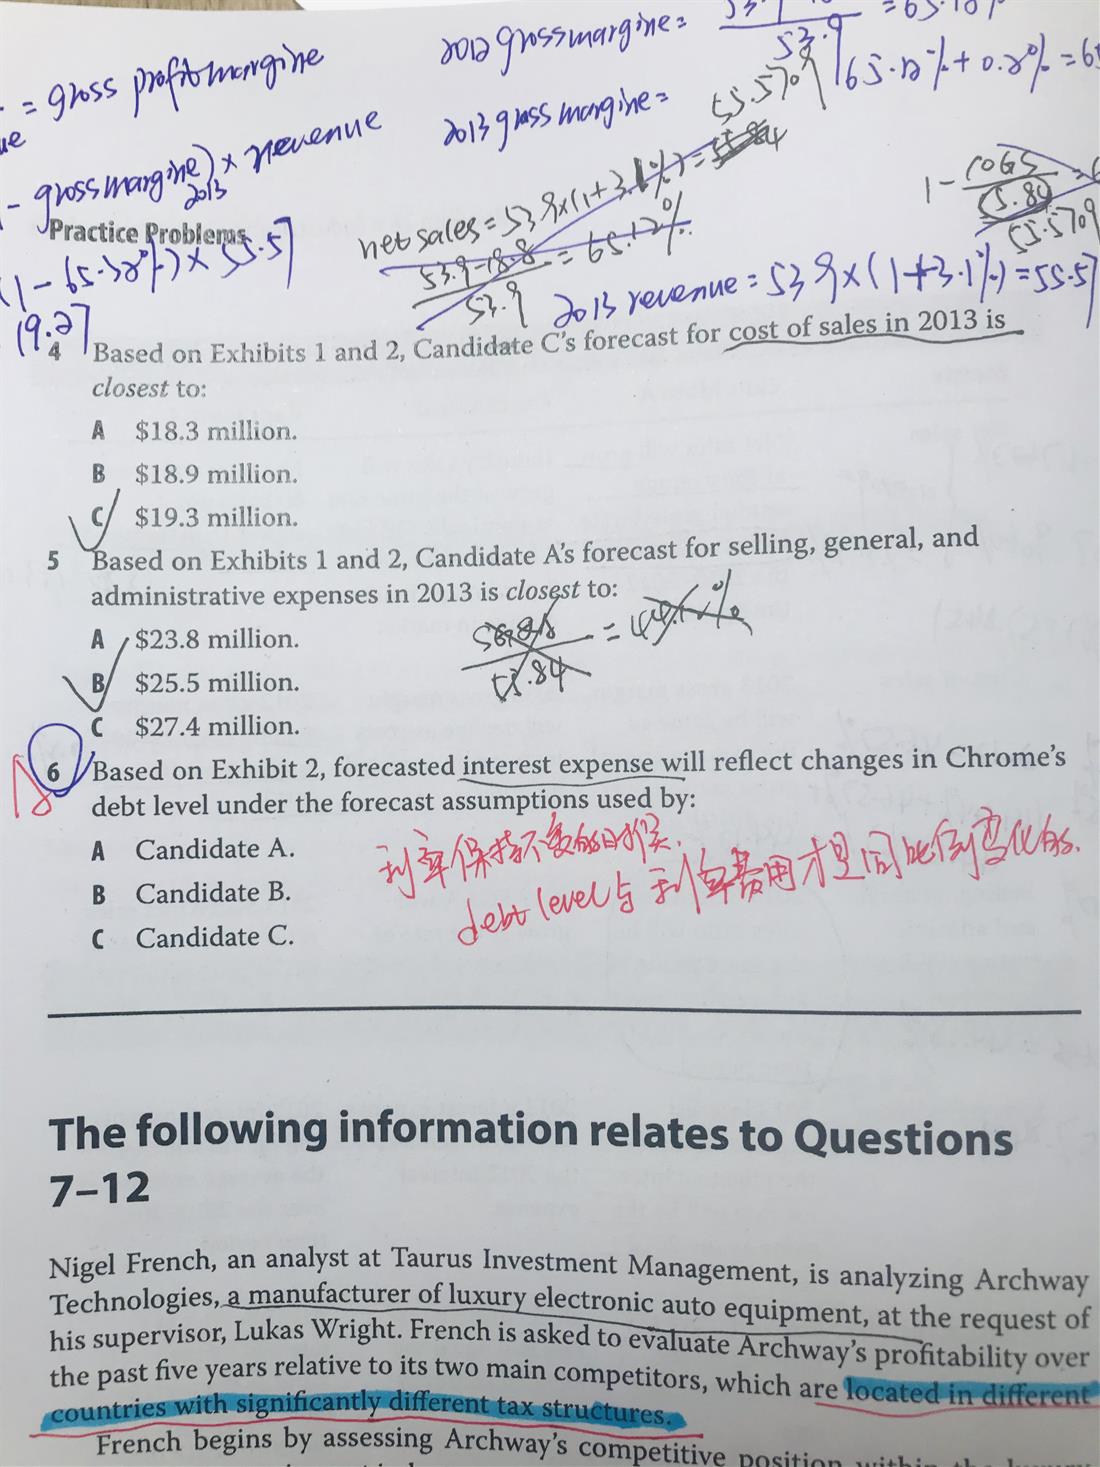 = gross profit margine
2012 gross margine =
53.9
65.12% + 0.2% =
2013 gross margine =
55.5709
- gross margine) × revenue
2013
Practice Problems
(1 - 65.32%) × 55.57
19.27
net sales = 53.9×(1+3.1%) =
53.9-18.8 = 65.12%
53.9
1 - COGS
55.84
55.5709
2013 revenue = 53.9×(1+3.1%) = 55.57
4 Based on Exhibits 1 and 2, Candidate C's forecast for cost of sales in 2013 is
closest to:
A $18.3 million.
B $18.9 million.
C $19.3 million.
5 Based on Exhibits 1 and 2, Candidate A's forecast for selling, general, and
administrative expenses in 2013 is closest to:
A $23.8 million.
B $25.5 million.
C $27.4 million.
6 Based on Exhibit 2, forecasted interest expense will reflect changes in Chrome's
debt level under the forecast assumptions used by:
A Candidate A.
B Candidate B.
C Candidate C.
利率保持不变的时候.
debt level与利率费用才是同比例变化的.
The following information relates to Questions
7–12
Nigel French, an analyst at Taurus Investment Management, is analyzing Archway
Technologies, a manufacturer of luxury electronic auto equipment, at the request of
his supervisor, Lukas Wright. French is asked to evaluate Archway's profitability over
the past five years relative to its two main competitors, which are located in different
countries with significantly different tax structures.
French begins by assessing Archway's competitive position within the luxury